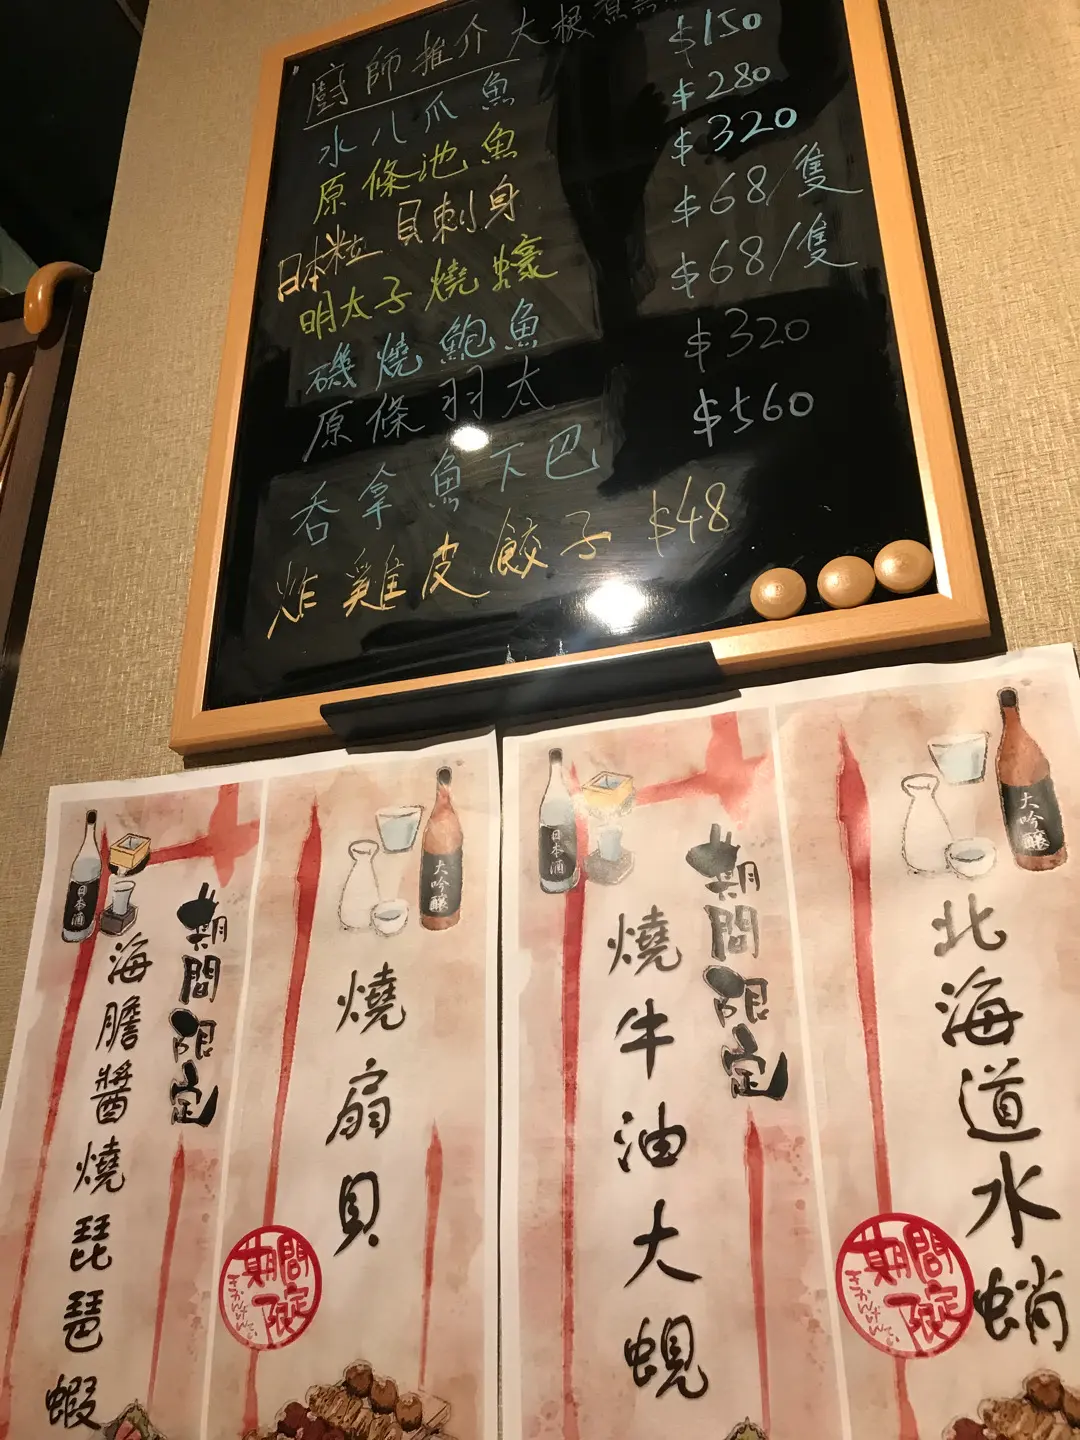 廚師推介 大根煮
水八爪魚 $150
原條池魚 $280
日本粒貝刺身 $320
明太子燒蠔 $68/隻
磯燒鮑魚 $68/隻
原條羽太 $320
吞拿魚下巴 $560
炸雞皮餃子 $48
日本酒
期間限定
海膽醬燒琵琶蝦
大吟釀
燒扇貝
期間限定
きかんげんてい
日本酒
期間限定
燒牛油大蜆
大吟釀
北海道水蛸
期間限定
きかんげんてい